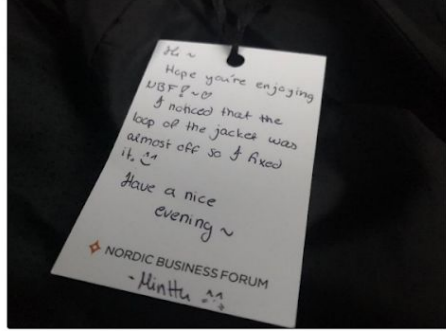 Hi ~
Hope you're enjoying
NBF! ~♡
I noticed that the
loop of the jacket was
almost off so I fixed
it. ^^
Have a nice
evening ~
NORDIC BUSINESS FORUM
- Minttu ^^